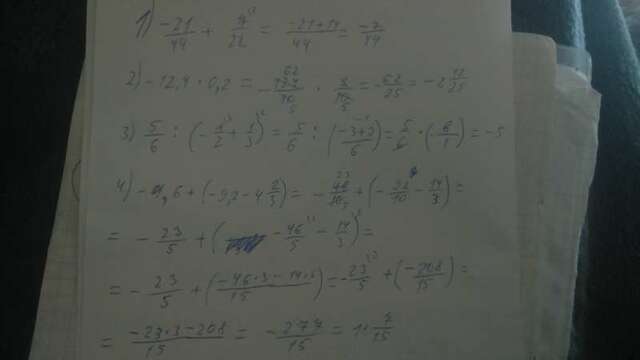 1) -21/44 + 7/22 = -21+14/44 = -7/44
2) -12,4 · 0,2 = -124/10 · 2/10 = -62/25 = -2 12/25
3) 5/6 : (-1/2 + 1/3) = 5/6 : (-3+2/6) = 5/6 · (-6/1) = -5
4) - ,6 + (-9,2 - 4 2/3) = -46/10 + (-92/10 - 14/3) =
= -23/5 + ( -46/5 - 14/3) =
= -23/5 + (-46·3-14·5/15) = -23/5 + (-208/15) =
= -23·3-208/15 = -277/15 = 7/15